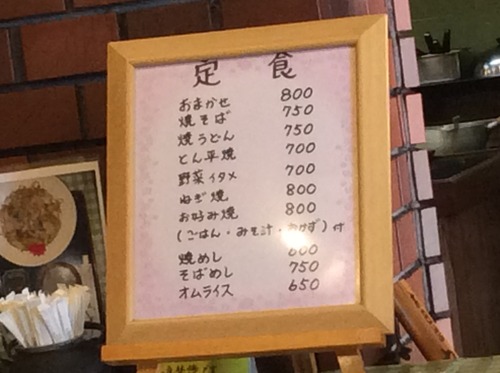 定食
おまかせ 800
焼そば 750
焼うどん 750
とん平焼 700
野菜イタメ 700
ねぎ焼 800
お好み焼 800
(ごはん・みそ汁・おかず)付
焼めし 600
そばめし 750
オムライス 650